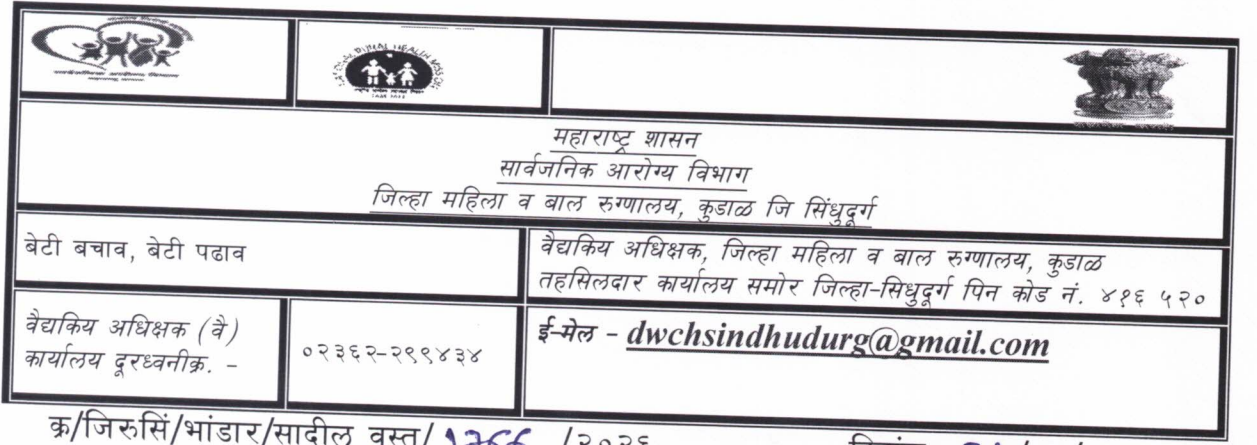 महाराष्ट्र शासन
सार्वजनिक आरोग्य विभाग
जिल्हा महिला व बाल रुग्णालय, कुडाळ जि सिंधुदूर्ग
बेटी बचाव, बेटी पढाव
वैद्यकिय अधिक्षक, जिल्हा महिला व बाल रुग्णालय, कुडाळ
तहसिलदार कार्यालय समोर जिल्हा-सिधुदूर्ग पिन कोड नं. ४१६ ५२०
वैद्यकिय अधिक्षक (वै)
कार्यालय दूरध्वनीक्र. -
०२३६२-२९९४३४
ई-मेल - dwchsindhudurg@gmail.com
क्र/जिरुसिं/भांडार/सादील वस्तु/ /२०२६